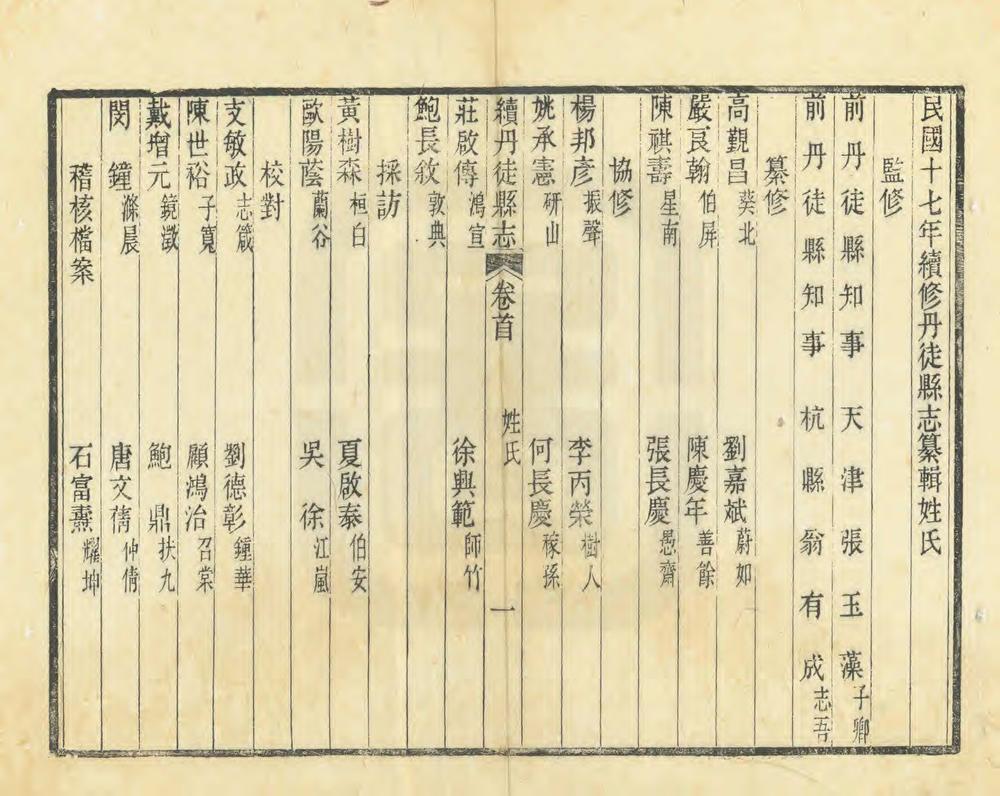 民國十七年續修丹徒縣志纂輯姓氏
監修
前丹徒縣知事 天津張玉藻 子卿
前丹徒縣知事 杭縣翁有成 志吾
纂修
高覲昌 葵北 劉嘉斌 蔚如
嚴良翰 伯屏 陳慶年 善餘
陳祺壽 星南 張長慶 愚齋
協修
楊邦彥 振聲 李丙榮 樹人
姚承憲 研山 何長慶 稼孫
續丹徒縣志 卷首 姓氏 一
莊啟傳 鴻宣 徐興範 師竹
鮑長敘 敦典
採訪
黃樹森 桓白 夏啟泰 伯安
歐陽蔭 蘭谷 吳徐 江嵐
校對
支敏政 志箴 劉德彰 鍾華
陳世裕 子寬 顧鴻治 召棠
戴增元 鏡澂 鮑鼎 扶九
閔鐘 滌晨 唐文蒨 仲倩
稽核檔案 石富燾 耀坤